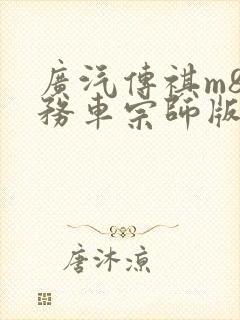 廣汽傳祺m8
務車宗師版
唐沐凉